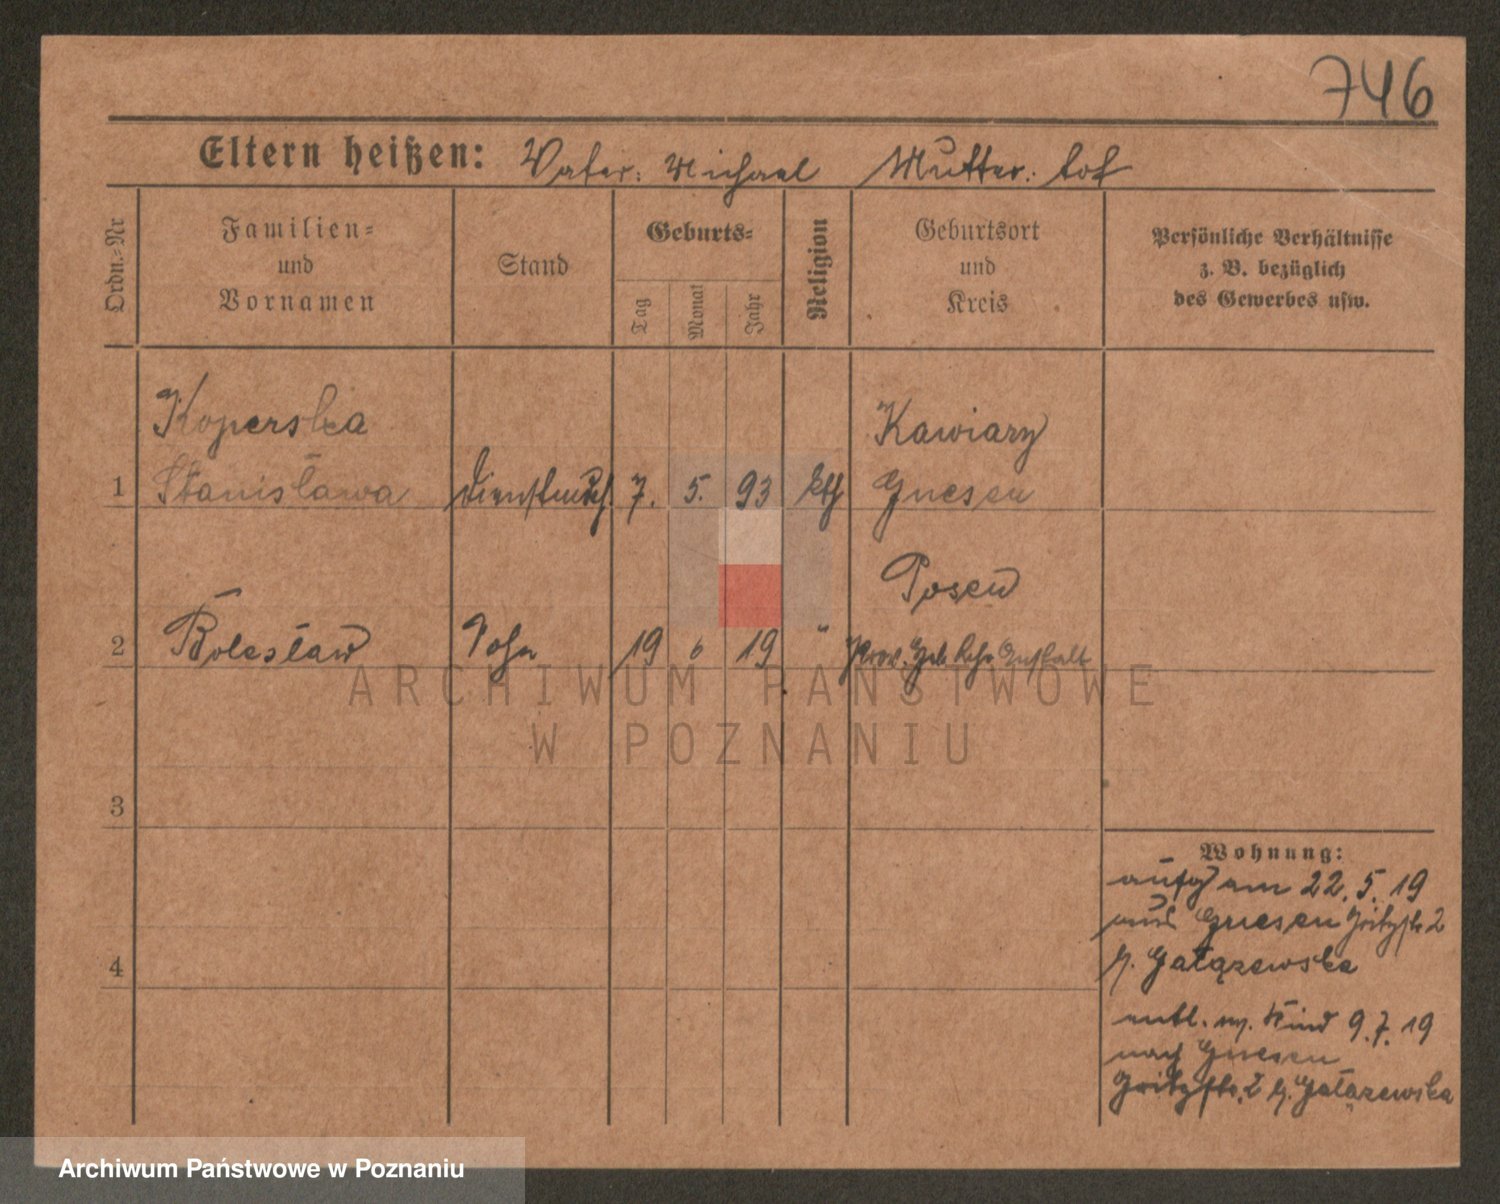 746
Eltern heißen: Vater: Michael Mutter: tot
Ordn.-Nr
Familien-
und
Vornamen
Stand
Geburts-
Tag
Monat
Jahr
Religion
Geburtsort
und
Kreis
Persönliche Verhältnisse
z. B. bezüglich
des Gewerbes usw.
Koperska Kawiary
1 Stanisława Dienstmdch. 7. 5. 93 kth Gnesen
Posen
2 Bolesław Sohn 19 6 19 " Prov. Geb. Lehr Anstalt
3
4
Wohnung:
aufg am 22.5.19
aus Gnesen 2
b. Gałązewska
entl. m. Kind 9.7.19
nach Gnesen
2 b. Gałązewska
ARCHIWUM PAŃSTWOWE
W POZNANIU
Archiwum Państwowe w Poznaniu